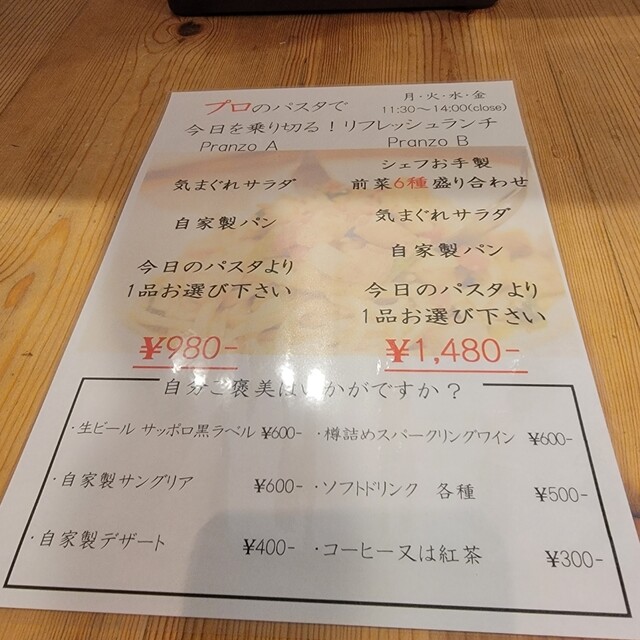 プロのパスタで
月・火・水・金
11:30～14:00(close)
今日を乗り切る！リフレッシュランチ
Pranzo A
気まぐれサラダ
自家製パン
今日のパスタより
1品お選び下さい
¥980-
Pranzo B
シェフお手製
前菜6種盛り合わせ
気まぐれサラダ
自家製パン
今日のパスタより
1品お選び下さい
¥1,480-
自分ご褒美はいかがですか？
・生ビール サッポロ黒ラベル ¥600-
・樽詰めスパークリングワイン ¥600-
・自家製サングリア ¥600-
・ソフトドリンク 各種 ¥500-
・自家製デザート ¥400-
・コーヒー又は紅茶 ¥300-